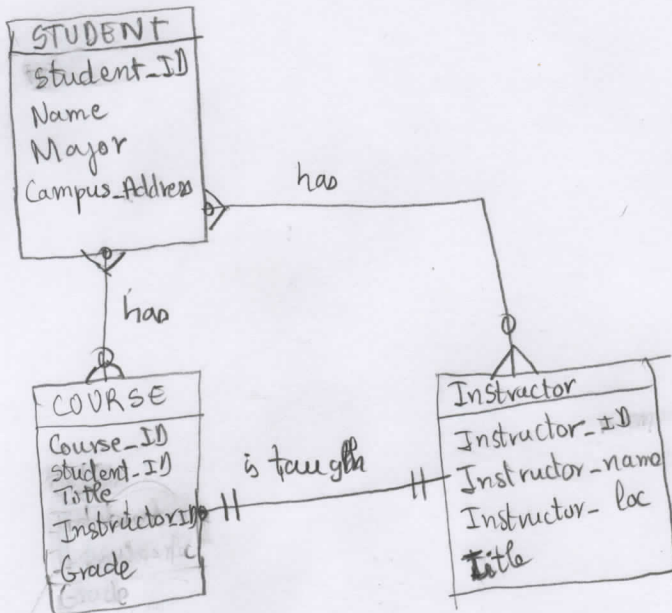 STUDENT
Student_ID
Name
Major
Campus_Address
has
has
COURSE
Course_ID
Student_ID
Title
InstructorID
Grade
is taugth
Instructor
Instructor_ID
Instructor_name
Instructor_loc
Title